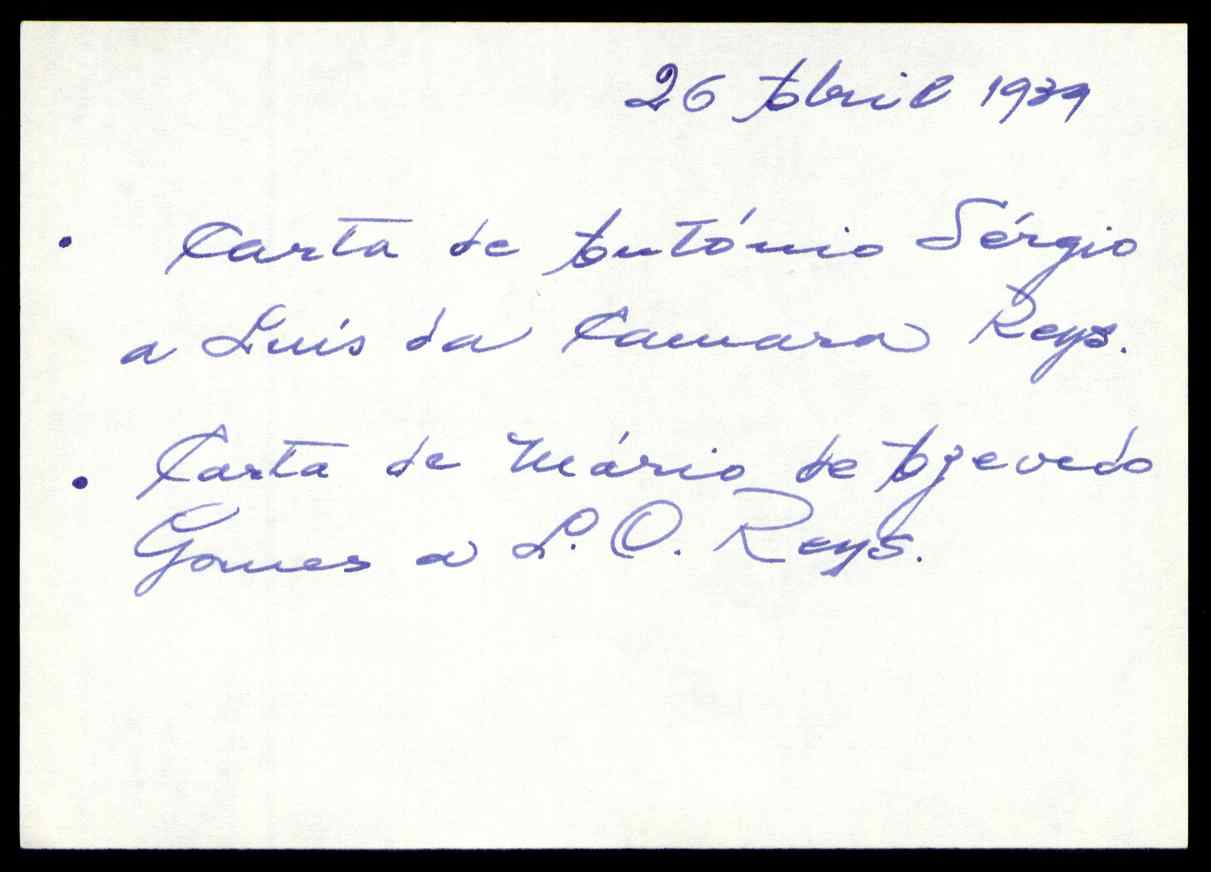 26 Abril 1939
• Carta de António Sérgio
a Luís da Camara Reys.
• Carta de Mário de Azevedo
Gomes a L. O. Reys.